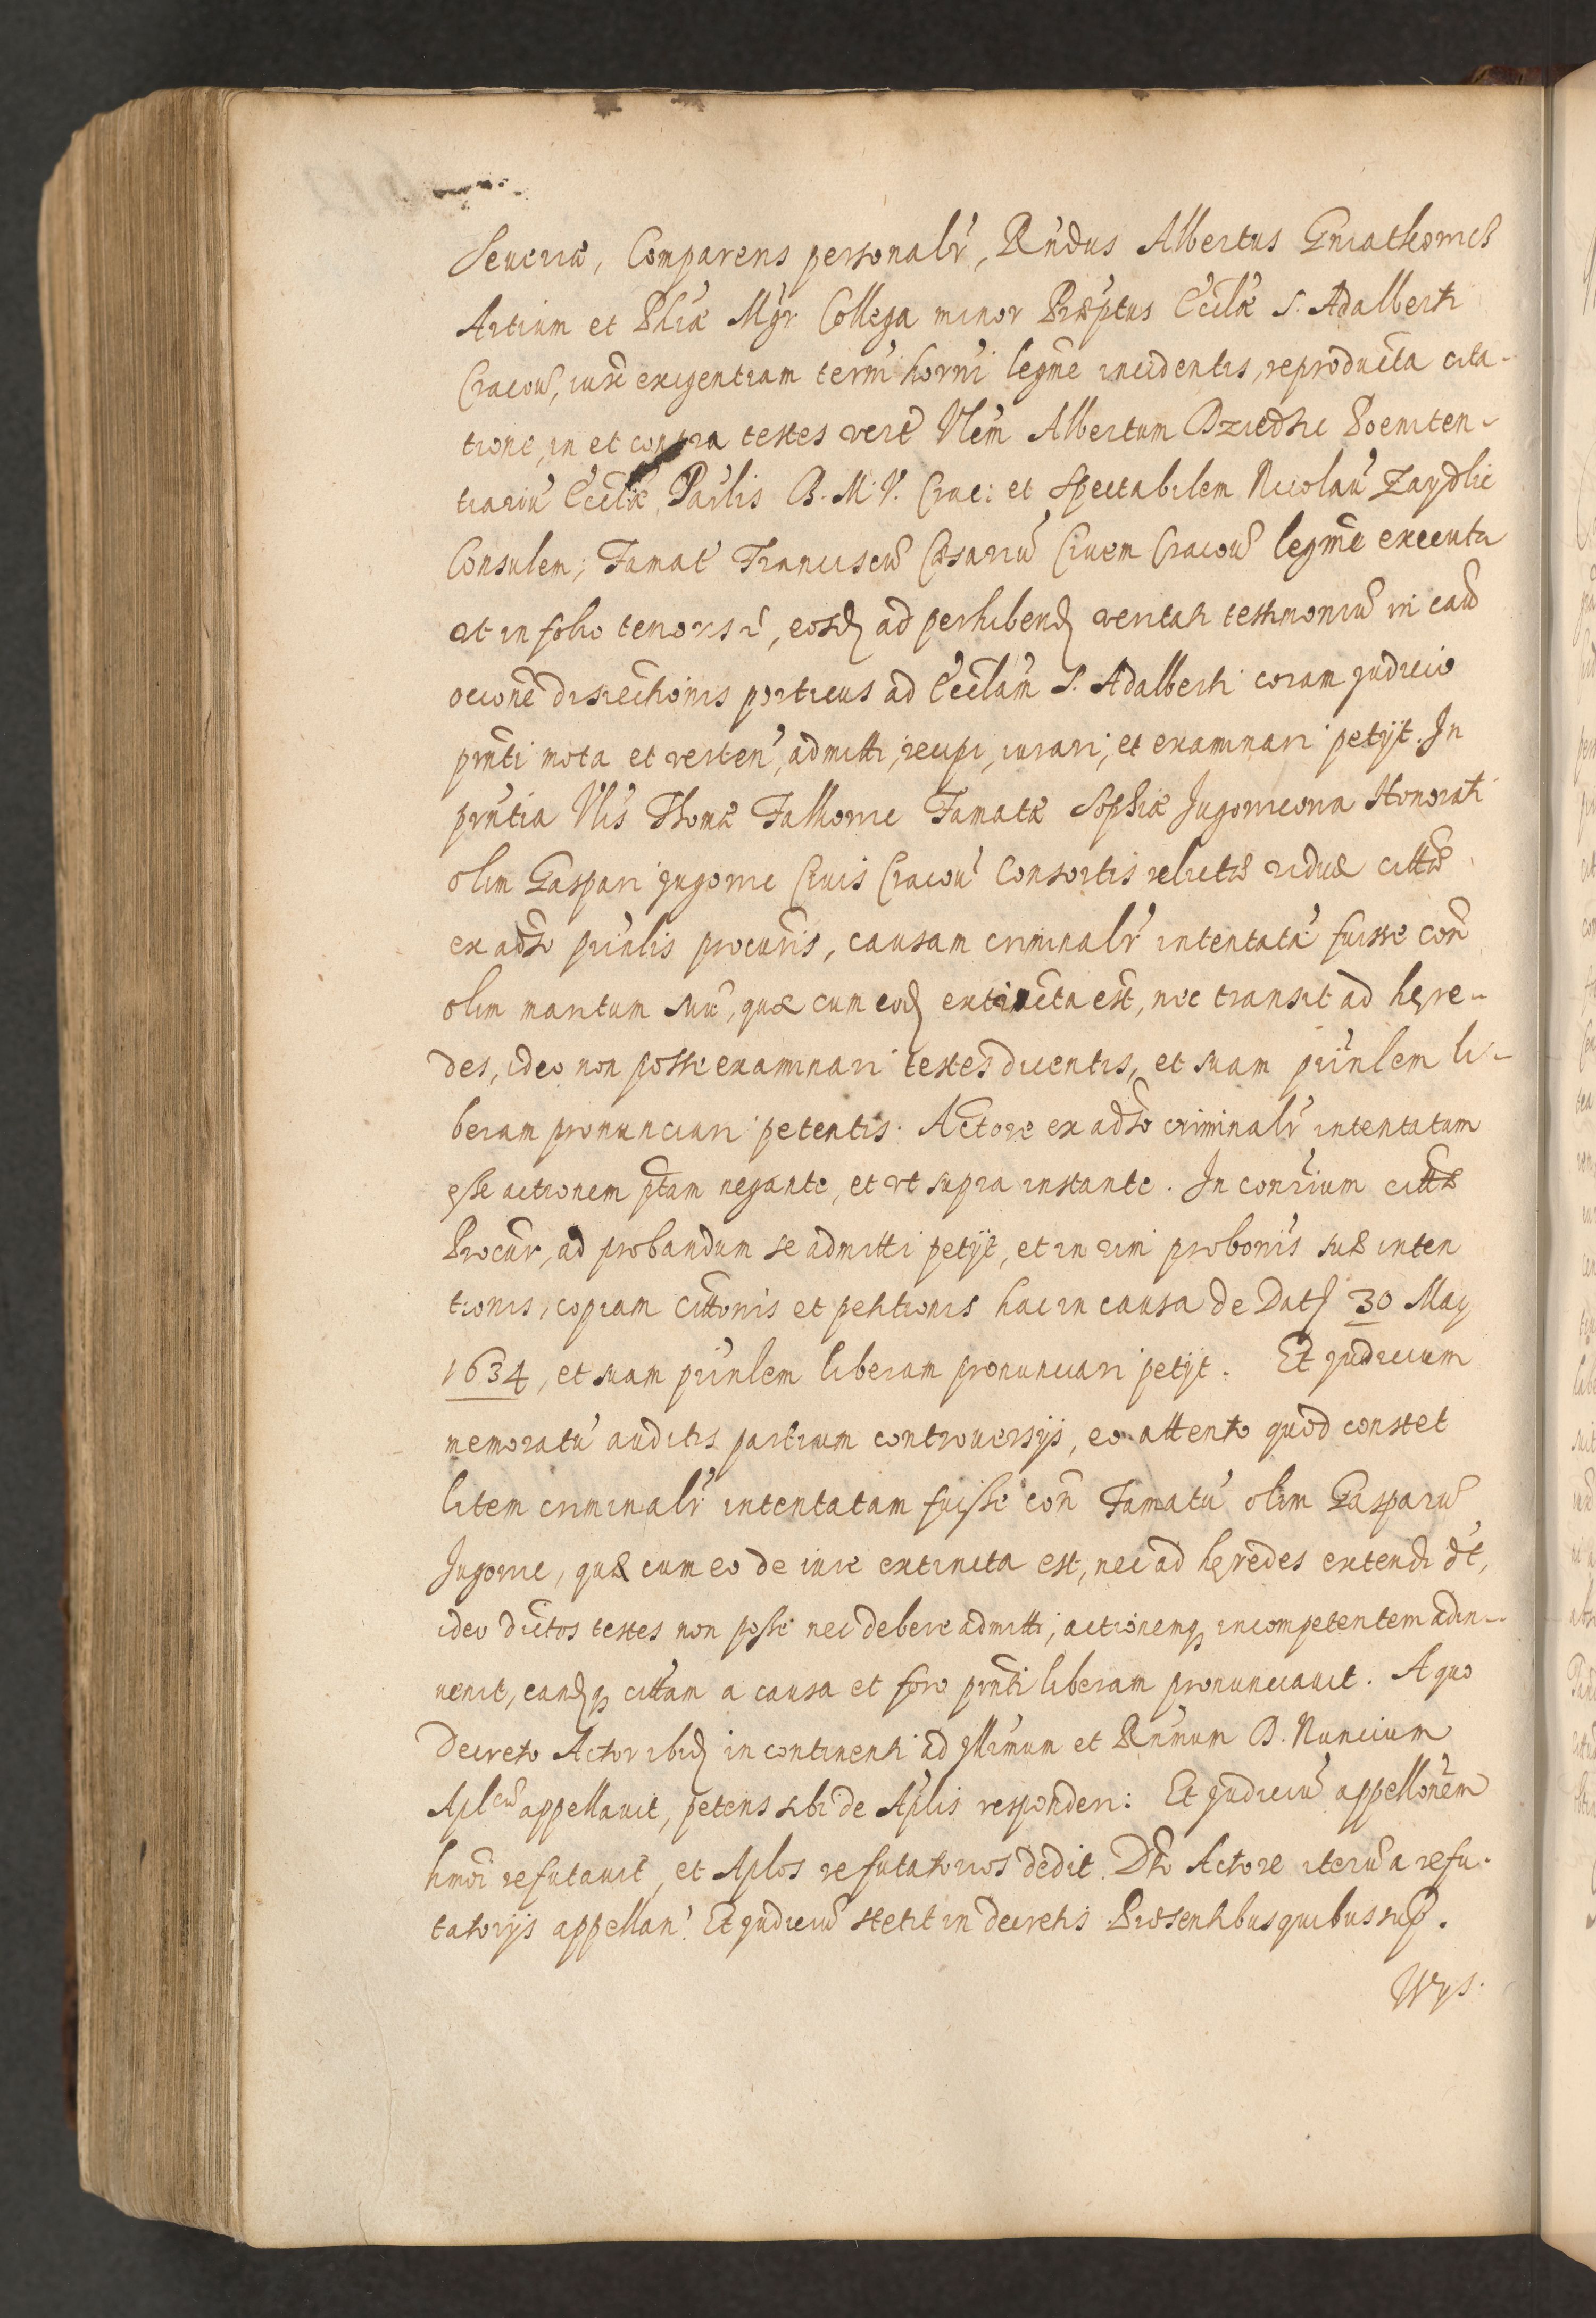 Seueriæ, Comparens personalr̃, Rñdus Albertus Gniathowicz
Artium et Phiæ Mgr̃ Collega minor Præptus Eccłæ S. Adalberti
Cracou, iuxẽ exigentiam termi horni legme incidentis, reproducta cita-
tione, in et contra testes Vlem Albertum Dziedzic Poeniten-
tiariũ Ecclæ Parłis B. M. V. Crac: et Spectabilem Nicolaũ Zaydlic
Consulem; Famat Franciscũ Cæsariũ Ciuem Cracou legme executa
ut in folio tenoris, eosd ad perhibend veritati testimoniũ in caũ
occone disiectionis porticus ad Ecclam S. Adalberti coram Judicio
pñti mota et verten, admitti, recipi, iurari, et examinari petijt. In
pñtia Vlis Thomæ Falkowic Famatæ Sophiæ Jugowicowa Honorati
olim Gaspari Jugowic Ciuis Cracou Consortis relictæ viduæ cittæ
ex adso prinłis procuris, causam criminalr̃ intentatã fuisse con
olim maritum suũ, quæ cum eod extincta est, nec transit ad hęre-
des, ideo non posse examinari testes dicentis, et suam prinłem li-
beram pronunciari petentis. Actore ex adso criminalr̃ intentatam
esse actionem ptam negante, et vt supra instante. In contrium cittæ
Procur, ad probandum se admitti petijt, et in vim probonis suæ inten
tionis, copiam cittonis et petitionis hac in causa de Dat 30 May
1634, et suam prinłem liberam pronunciari petijt. Et Judicium
memoratũ auditis partium controuersijs, eo attento quod constet
litem criminalr̃ intentatam fuisse con Famatũ olim Gasparũ
Jugowic, quæ cum eo de iure extincta est, nec ad hęredes extendi dt,
ideo dictos testes non posse nec debere admitti, actionemq incompetentem adin-
uenit, eandq cittam a causa et foro pñti liberam pronunciauit. A quo
Decreto Actor ibid in continenti ad Jllmum et Rñmum D. Nuncium
Aplcũ appellauit, petens sibi de Aplis responderi: Et Judiciũ appellonem
hmoi refutauit, et Aplos refutatorios dedit. Dto Actore iterũ a refu-
tatorijs appellan. Et Judiciũ stetit in decretis Præsentibus quibus sup.
Wys.